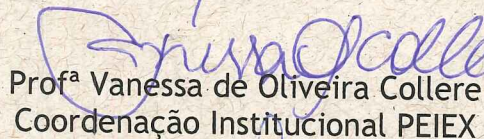 Profª Vanessa de Oliveira Collere
Coordenação Institucional PEIEX